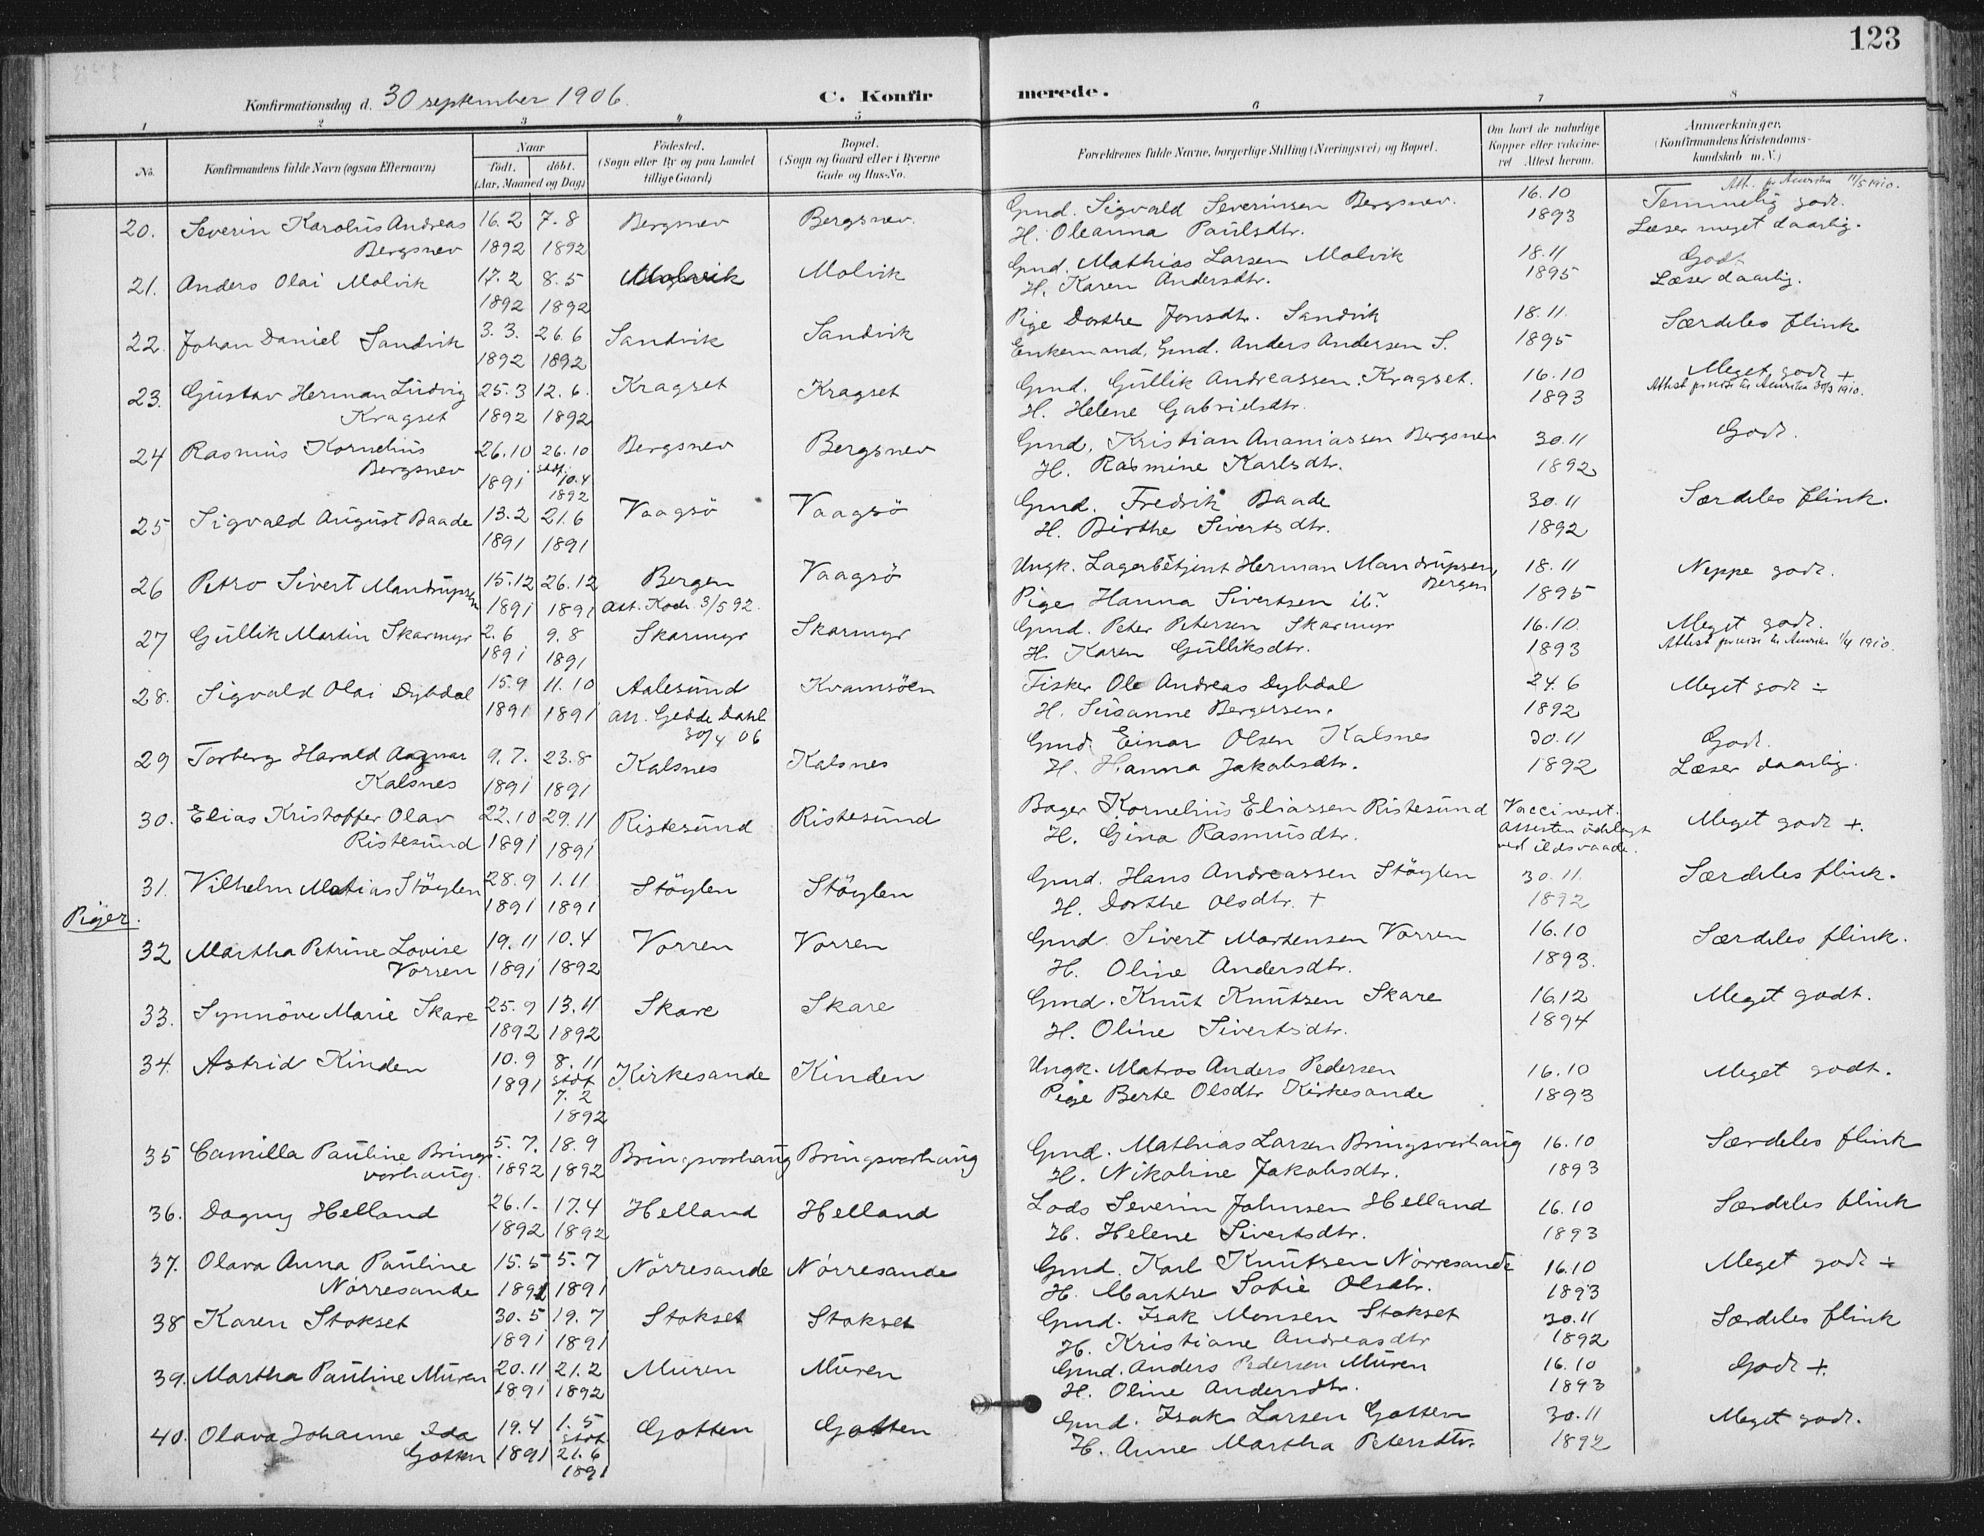 123
Konfirmationsdag d. 30 september 1906. C. Konfirmerede.
1 2 3 4 5 6 7 8
No. Konfirmandens fulde Navn (ogsaa Efternavn) Naar født. døbt. (Aar, Maaned og Dag) Fødested. (Sogn eller By og paa Landet tillige Gaard) Bopæl. (Sogn og Gaard eller i Byerne Gade og Hus-No. Forældrenes fulde Navne, borgerlige Stilling (Næringsvei) og Bopæl. Om havt de naturlige Kopper eller vaccineret. Attest herom. Anmærkninger. (Konfirmandens Kristendomskundskab m. V.)
20. Severin Karolus Andreas Bergsnev 16.2 1892 7.8 1892 Bergsnev Bergsnev. Gmd. Sigvald Severinsen Bergsnev. H. Oleanna Paulsdtr. 16.10 1893 Att. pr Amerika 11/5 1910. Temmelig godt. Læser meget daarlig.
21. Anders Olai Molvik 17.2 1892 8.5 1892 Molvik Molvik Gmd. Mathias Larsen Molvik H. Karen Andersdtr. 18.11 1895 Godt Læser daarlig.
22. Johan Daniel Sandvik 3.3. 1892 26.6 1892 Sandvik Sandvik Pige Dorthe Jonsdtr. Sandvik Enkemand, Gmd. Anders Andersen S. 18.11. 1895 Særdeles flink
23. Gustav Herman Ludvig Kragset 25.3 1892 12.6. 1892 Kragset Kragset Gmd. Gullik Andreassen Kragset. H. Helene Gabrielsdtr. 16.10 1893 Meget godt + Attest pr til Amerika 30/3 1910.
24 Rasmus Kornelius Bergsnev 26.10 1891 26.10 stdf. 10.4 1892 Bergsnev Bergsnev Gmd. Kristian Ananiassen Bergsnev H. Rasmine Karlsdtr. 30.11 1892 Godt.
25 Sigvald August Baade 13.2 1891 21.6 1891 Vaagsö Vaagsö Gmd. Fredrik Baade H. Birthe Sivertsdtr. 30.11 1892 Særdeles flink.
26 Petro Sivert Mandrupsen 15.12 1891 26.12 1891 Bergen Att. Koch 3/5 92. Vaagsö Ungk. Lagerbetjent Herman Mandrupsen, Bergen Pige Hanna Sivertsen ib. 18.11 1895 Neppe godt.
27 Gullik Martin Skarmyr 2.6 1891 9.8 1891 Skarmyr Skarmyr Gmd. Peter Petersen Skarmyr H. Karen Gulliksdtr. 16.10. 1893 Meget godt. Attest til Amerika 1/4 1910.
28. Sigvald Olai Dybdal 15.9 1891 11.10 1891 Aalesund Att. Gedde Dahl 30/4 06 Kvamsöen Fisker Ole Andreas Dybdal H. Susanne Bergersen. 24.6 1892 Meget godt ÷
29 Torberg Harald Ragnar Kalsnes 9.7. 1891 23.8 1891 Kalsnes Kalsnes Gmd. Einar Olsen Kalsnes H. Hanna Jakobsdtr. 30.11 1892 Godt. Læser daarlig.
30. Elias Kristoffer Olav Ristesund 22.10 1891 29.11 1891 Ristesund Ristesund Bager Kornelius Eliassen Ristesund H. Gina Rasmusdtr. Vaccineret. Attesten ödelagt ved ildsvaade. Meget godt +.
31. Vilhelm Matias Stöylen 28.9 1891 1.11 1891 Stöylen Stöylen Gmd. Hans Andreassen Stöylen H. Dorthe Olsdtr. + 30.11. 1892 Særdeles flink.
Piger.
32 Martha Petrine Lovise Vorren 19.11 1891 10.4 1892 Vorren Vorren Gmd. Sivert Mortensen Vorren H. Oline Andersdtr. 16.10 1893. Særdeles flink.
33. Synnöve Marie Skare 25.9 1892 13.11 1892 Skare Skare Gmd. Knut Knutsen Skare H. Oline Sivertsdtr. 16.12 1894 Meget godt.
34. Astrid Kinden 10.9 1891 8.11 stdf 7.2 1892 Kirkesande Kinden Ungk. Matros Anders Pedersen Pige Berte Olsdtr Kirkesande 16.10 1893 Meget godt.
35 Camilla Pauline Brings- vorhaug. 5.7. 1892 18.9 1892 Bringsvorhaug Bringsvorhaug Gmd. Mathias Larsen Bringsvorhaug H. Nikoline Jakobsdtr. 16.10 1893 Særdeles flink
36. Dagny Helland 26.1. 1892 17.4 1892 Helland Helland Lods Severin Johnsen Helland H. Helene Sivertsdtr. 16.10 1893 Særdeles flink
37. Olava Anna Pauline Nörresande 15.5 1891 5.7 1891 Nörresande Nörresande Gmd. Karl Knutsen Nörresande H. Marthe Sofie Olsdtr. 16.10 1893 Meget godt ÷
38 Karen Stokset 30.5 1891 19.7 1891 Stokset Stokset Gmd. Isak Monsen Stokset H. Kristiane Andreasdtr 30.11 1892 Særdeles flink
39. Martha Pauline Muren 20.11 1891 21.2 1892 Muren Muren Gmd. Anders Pedersen Muren H. Oline Andersdtr. 16.10 1893 Godt +.
40. Olava Johanne Ida Gotten 19.4 1891 1.5 stdf 21.6 1891 Gotten Gotten Gmd. Isak Larsen Gotten H. Anne Martha Petersdtr. 30.11 1892 Meget godt.